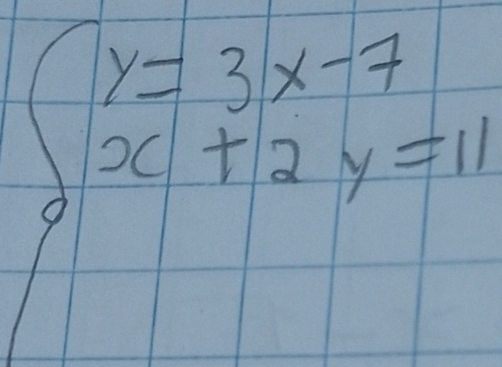 y = 3x - 7
x + 2y = 11